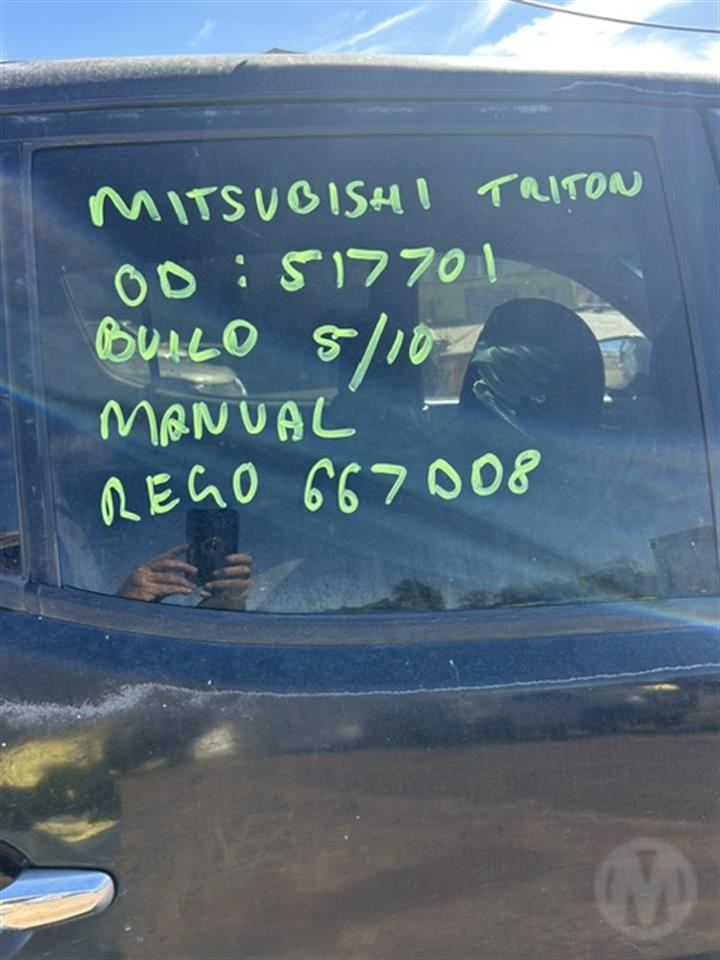 MITSUBISHI TRITON
OD: 517701
BUILD 5/10
MANUAL
REGO 667DD8
M